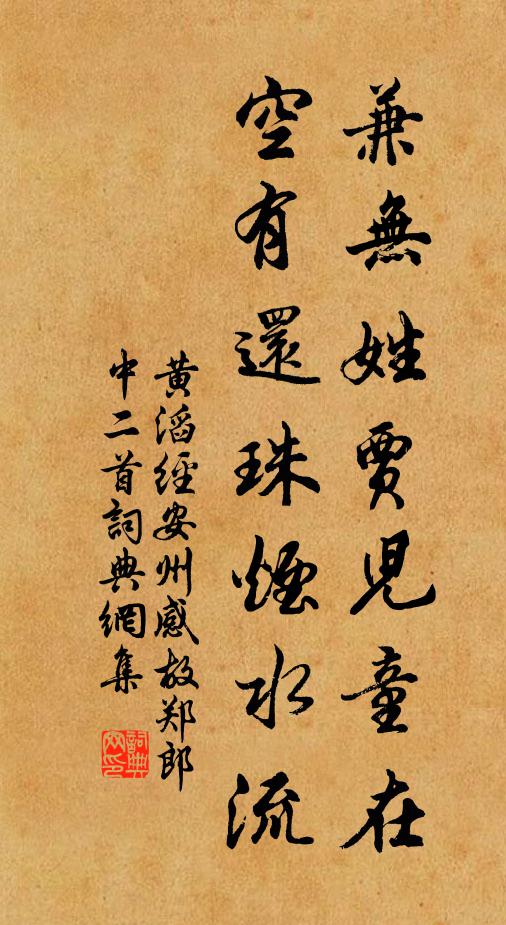 兼無姓賈兒童在
空有還珠煙水流
黃滔經安州感故郑郎
中二首詞典網集
詞典
网印